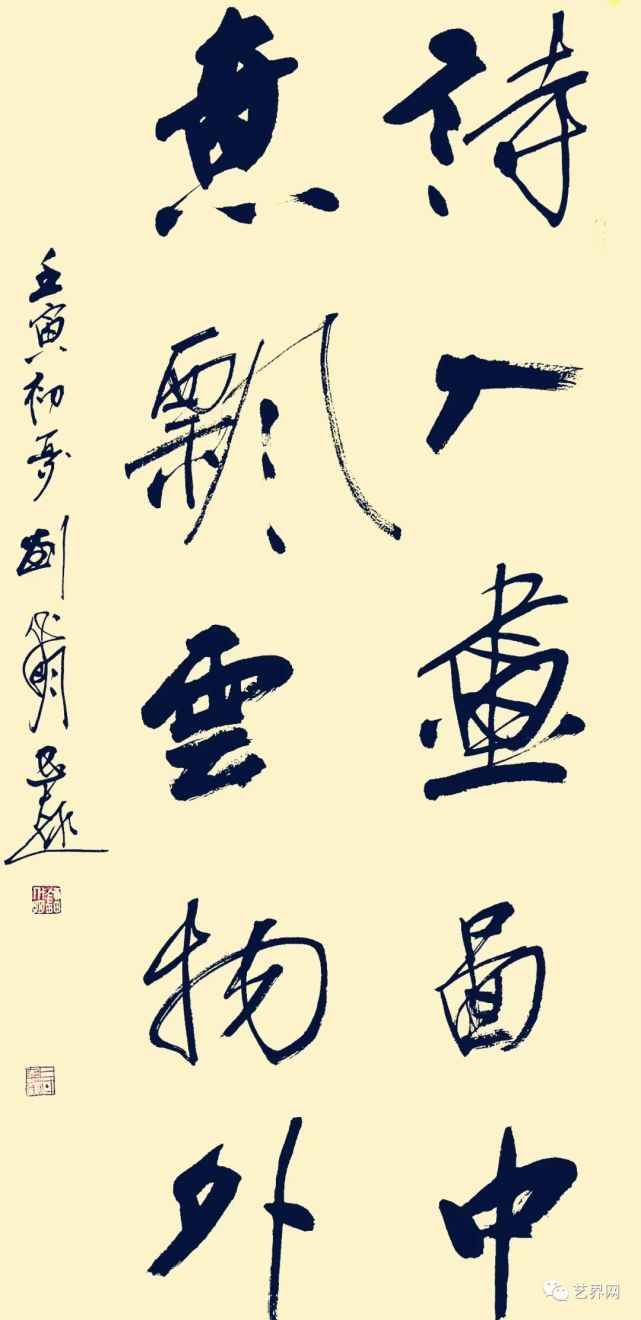 詩入畫圖中
意飄雲物外
壬寅初夏劉明
艺界网